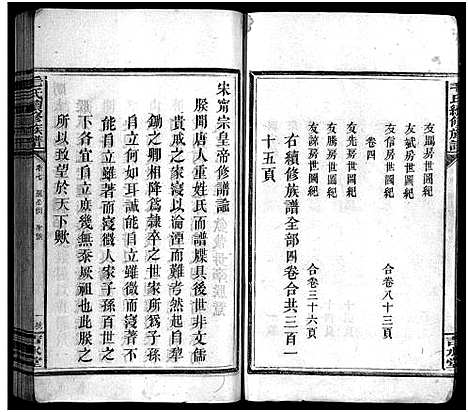 毛氏續修族譜
友鳳房世圖紀
友斌房世圖紀 合卷八十三頁
卷四
友信房世圖紀
友先房世圖紀 合卷三十六頁
友諒房世圖紀
右續修族譜全部四卷合共三百一
十五頁
宋甯宗皇帝修譜諭
朕聞唐人重姓氏而譜牒具後世非文儒
貴戚之家寖以淪湮而難考然起自犂
鋤之卿相降爲隸卒之世家所爲子孫
自立何如耳誠能自立雖微而寖著不
能自立雖著而寖微人家子孫百世之
下各宜自立庶幾無忝厥祖也此朕之
所以致望於天下歟
毛氏續修族譜